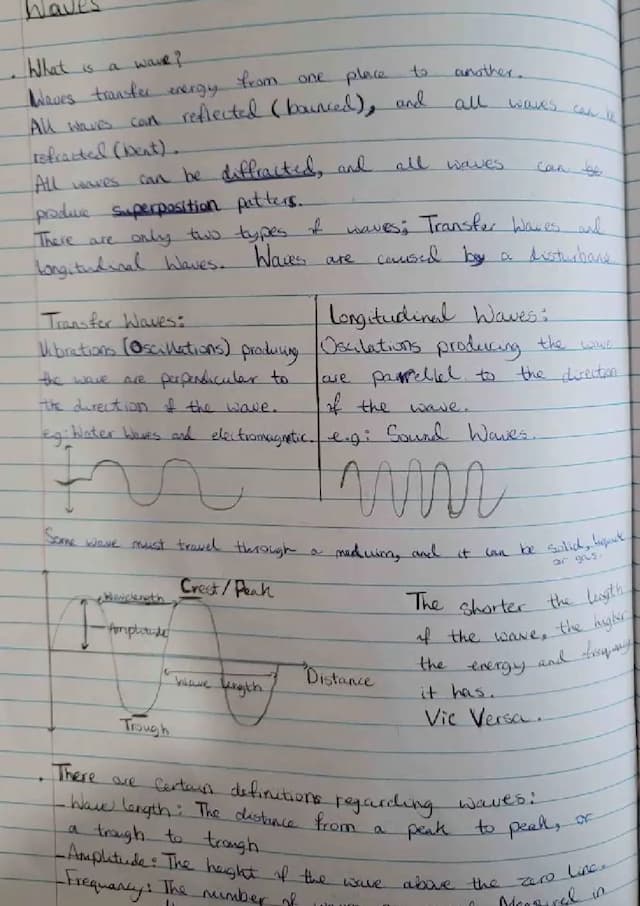 Waves
. What is a wave?
Waves transfer energy from one place to another.
All waves can reflected (bounced), and all waves can be
refracted (bent).
All waves can be diffracted, and all waves can be
produce superposition patters.
There are only two types of waves; Transfer Waves and
Longitudinal Waves. Waves are caused by a disturbance
Transfer Waves:
Vibrations (Oscillations) producing
the wave are perpendicular to
the direction of the wave.
Eg: Water Waves and electromagnetic.
Longitudinal Waves:
Oscilations producing the wave
are parrellel to the direction
of the wave.
e.g: Sound Waves.
Some wave must travel through a meduim, and it can be solid,
or gas.
Crest/Peak
Wavelength
Amplitude
Wave length
Distance
Trough
The shorter the length
of the wave, the higher
the energy and frequency
it has.
Vic Versa.
. There are certain definitions regarding waves:
- Wave length: The distance from a peak to peak, or
a trough to trough
- Amplitude: The height of the wave above the zero line.
- Frequancy: The number of Measured in